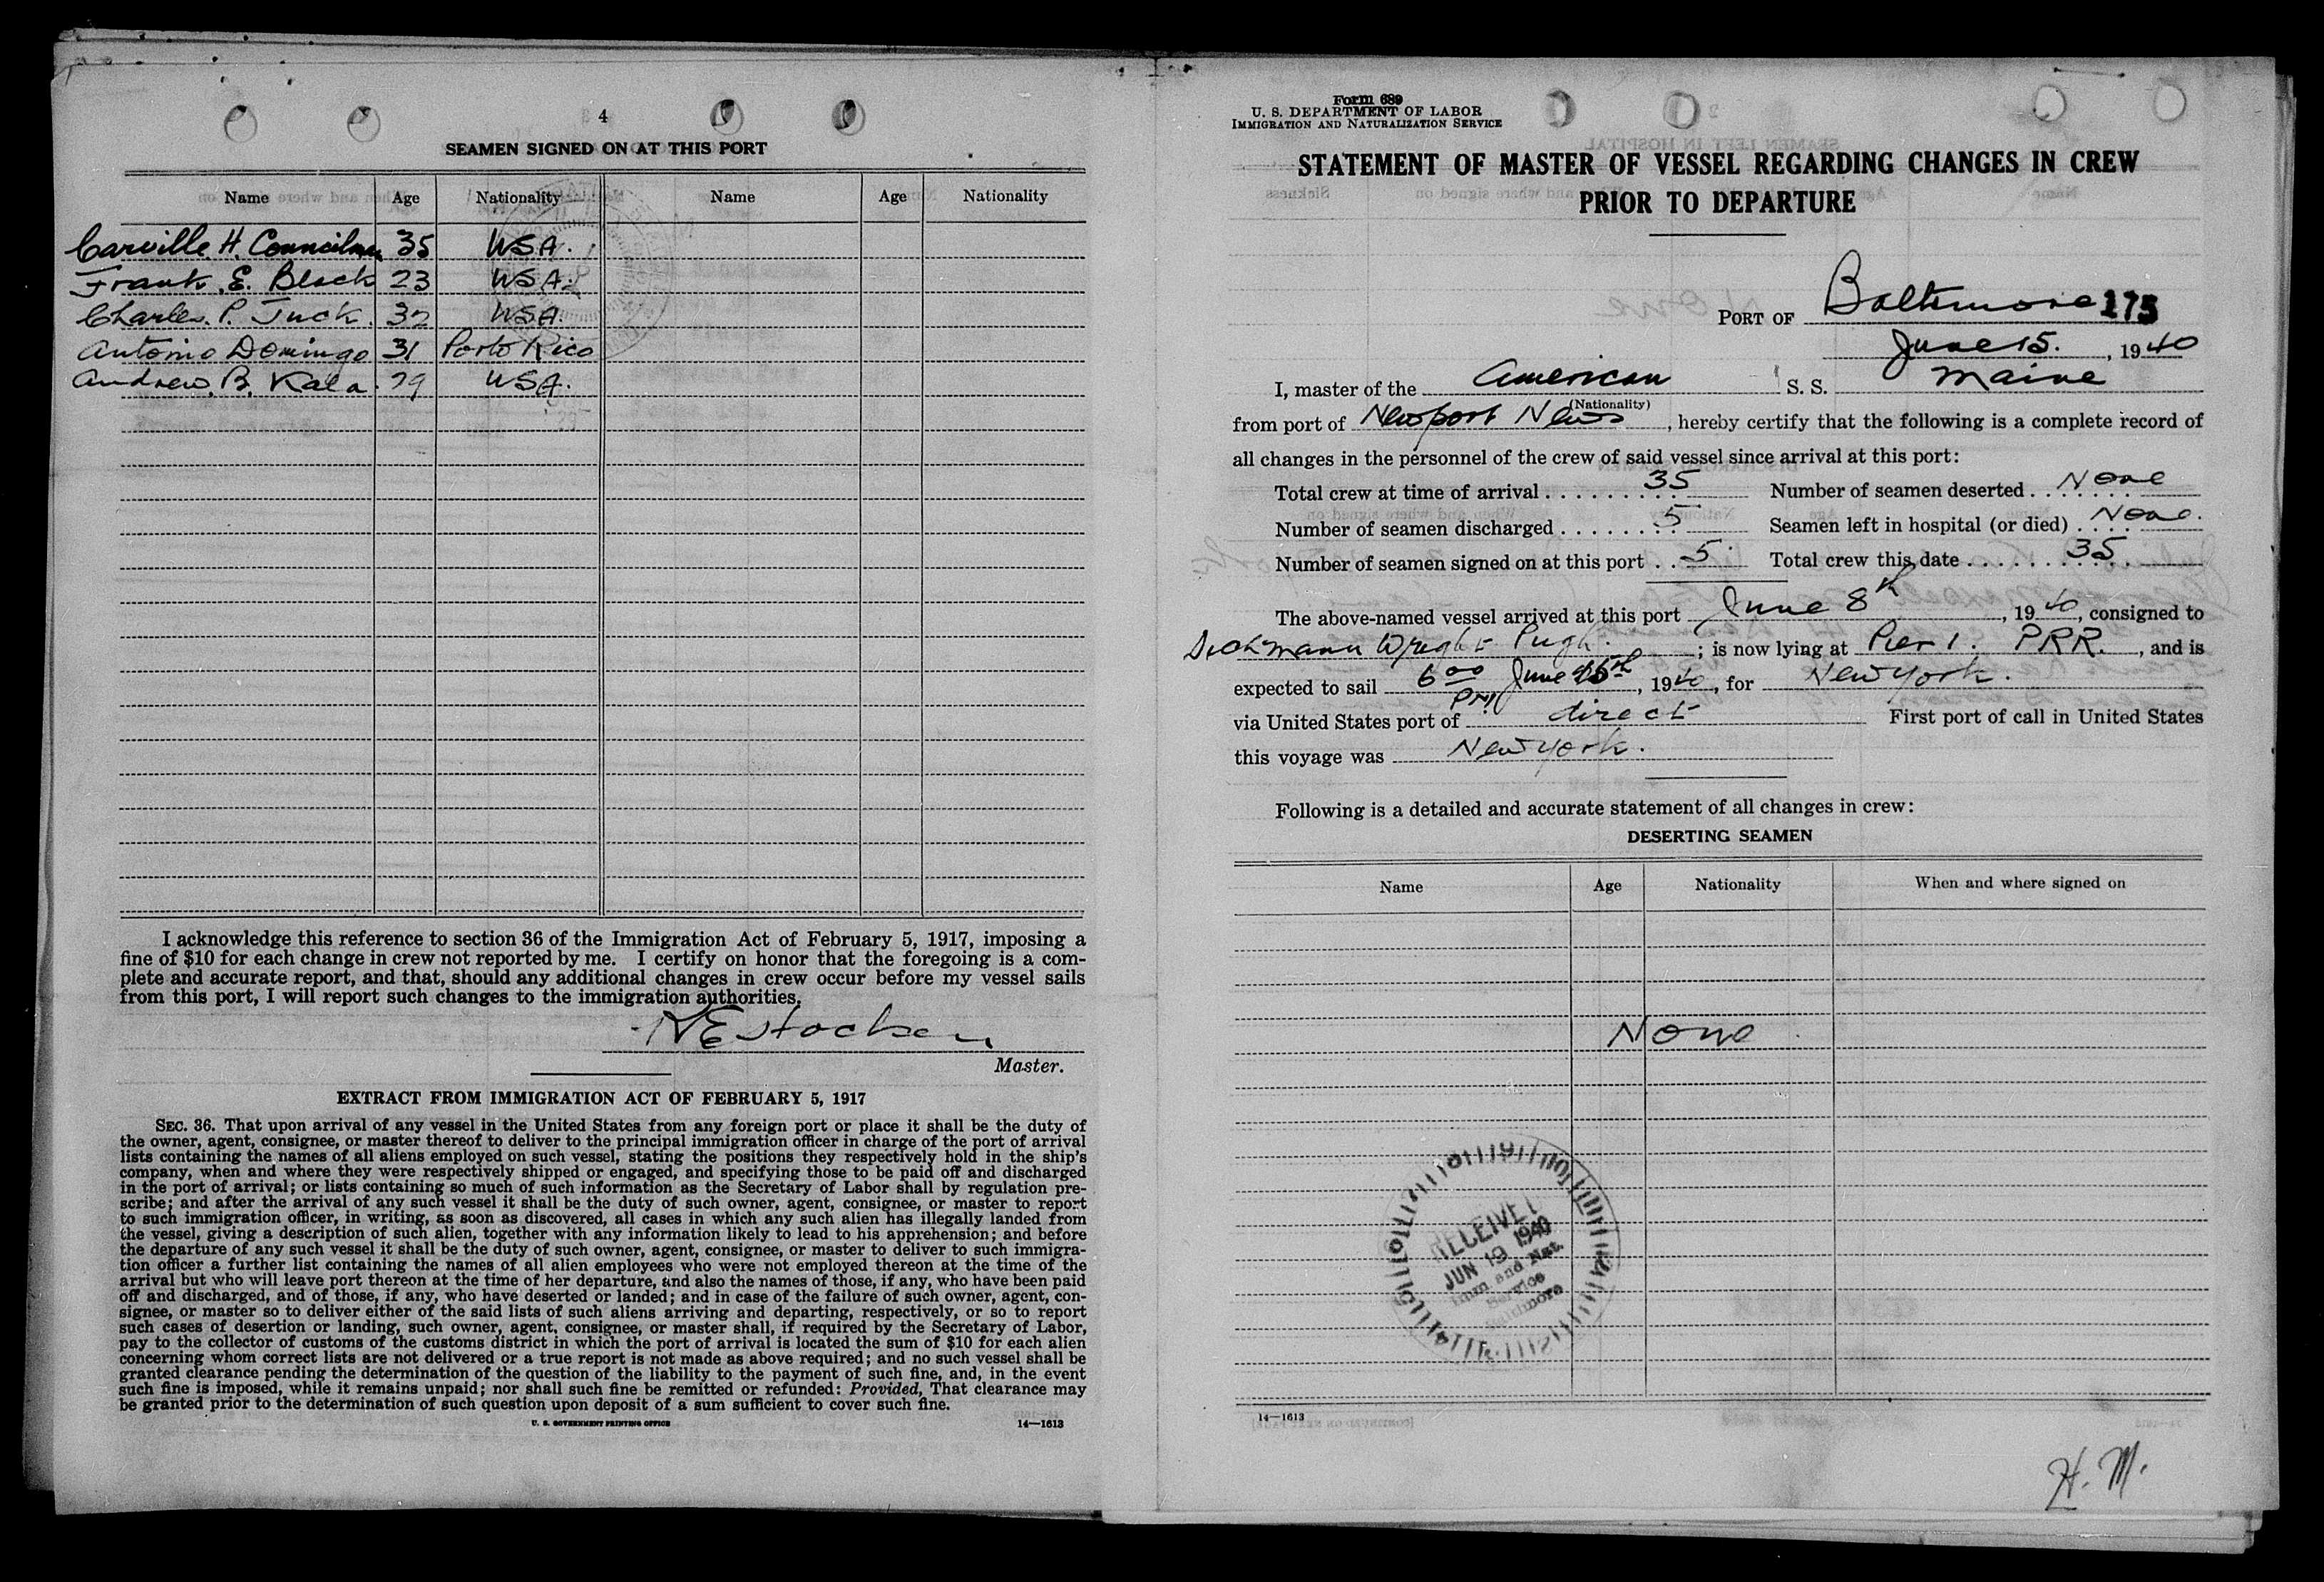 4
SEAMEN SIGNED ON AT THIS PORT
Name Age Nationality Name Age Nationality
Carville. H. Councilman 35 USA.
Frank. E. Black 23 USA.
Charles. P. Tuck. 32 USA.
Antonio Domingo 31 Porto Rico
Andrew. B. Kala. 29 USA.
I acknowledge this reference to section 36 of the Immigration Act of February 5, 1917, imposing a
fine of $10 for each change in crew not reported by me. I certify on honor that the foregoing is a com-
plete and accurate report, and that, should any additional changes in crew occur before my vessel sails
from this port, I will report such changes to the immigration authorities.
Master.
EXTRACT FROM IMMIGRATION ACT OF FEBRUARY 5, 1917
SEC. 36. That upon arrival of any vessel in the United States from any foreign port or place it shall be the duty of
the owner, agent, consignee, or master thereof to deliver to the principal immigration officer in charge of the port of arrival
lists containing the names of all aliens employed on such vessel, stating the positions they respectively hold in the ship's
company, when and where they were respectively shipped or engaged, and specifying those to be paid off and discharged
in the port of arrival; or lists containing so much of such information as the Secretary of Labor shall by regulation pre-
scribe; and after the arrival of any such vessel it shall be the duty of such owner, agent, consignee, or master to report
to such immigration officer, in writing, as soon as discovered, all cases in which any such alien has illegally landed from
the vessel, giving a description of such alien, together with any information likely to lead to his apprehension; and before
the departure of any such vessel it shall be the duty of such owner, agent, consignee, or master to deliver to such immigra-
tion officer a further list containing the names of all alien employees who were not employed thereon at the time of the
arrival but who will leave port thereon at the time of her departure, and also the names of those, if any, who have been paid
off and discharged, and of those, if any, who have deserted or landed; and in case of the failure of such owner, agent, con-
signee, or master so to deliver either of the said lists of such aliens arriving and departing, respectively, or so to report
such cases of desertion or landing, such owner, agent, consignee, or master shall, if required by the Secretary of Labor,
pay to the collector of customs of the customs district in which the port of arrival is located the sum of $10 for each alien
concerning whom correct lists are not delivered or a true report is not made as above required; and no such vessel shall be
granted clearance pending the determination of the question of the liability to the payment of such fine, and, in the event
such fine is imposed, while it remains unpaid; nor shall such fine be remitted or refunded: Provided, That clearance may
be granted prior to the determination of such question upon deposit of a sum sufficient to cover such fine.
U. S. GOVERNMENT PRINTING OFFICE 14—1613
Form 689
U. S. DEPARTMENT OF LABOR
IMMIGRATION AND NATURALIZATION SERVICE
STATEMENT OF MASTER OF VESSEL REGARDING CHANGES IN CREW
PRIOR TO DEPARTURE
PORT OF Baltimore 175
June 15. , 1940
I, master of the American S. S. Maine
(Nationality)
from port of Newport News , hereby certify that the following is a complete record of
all changes in the personnel of the crew of said vessel since arrival at this port:
Total crew at time of arrival . . . . . . . . . 35 Number of seamen deserted . . . . . . . None
Number of seamen discharged . . . . . . . . 5 Seamen left in hospital (or died) . . . . None.
Number of seamen signed on at this port . . 5 Total crew this date . . . . . . . . . . . . 35
The above-named vessel arrived at this port June 8th , 1940, consigned to
Wright Pugh. ; is now lying at Pier 1. PRR. , and is
expected to sail 6 00 PM June 15th , 1940, for New York.
via United States port of direct First port of call in United States
this voyage was New York.
Following is a detailed and accurate statement of all changes in crew:
DESERTING SEAMEN
Name Age Nationality When and where signed on
None
RECEIVED
JUN 19 1940
Imm and Nat.
Service
Baltimore
14—1613
H. M.